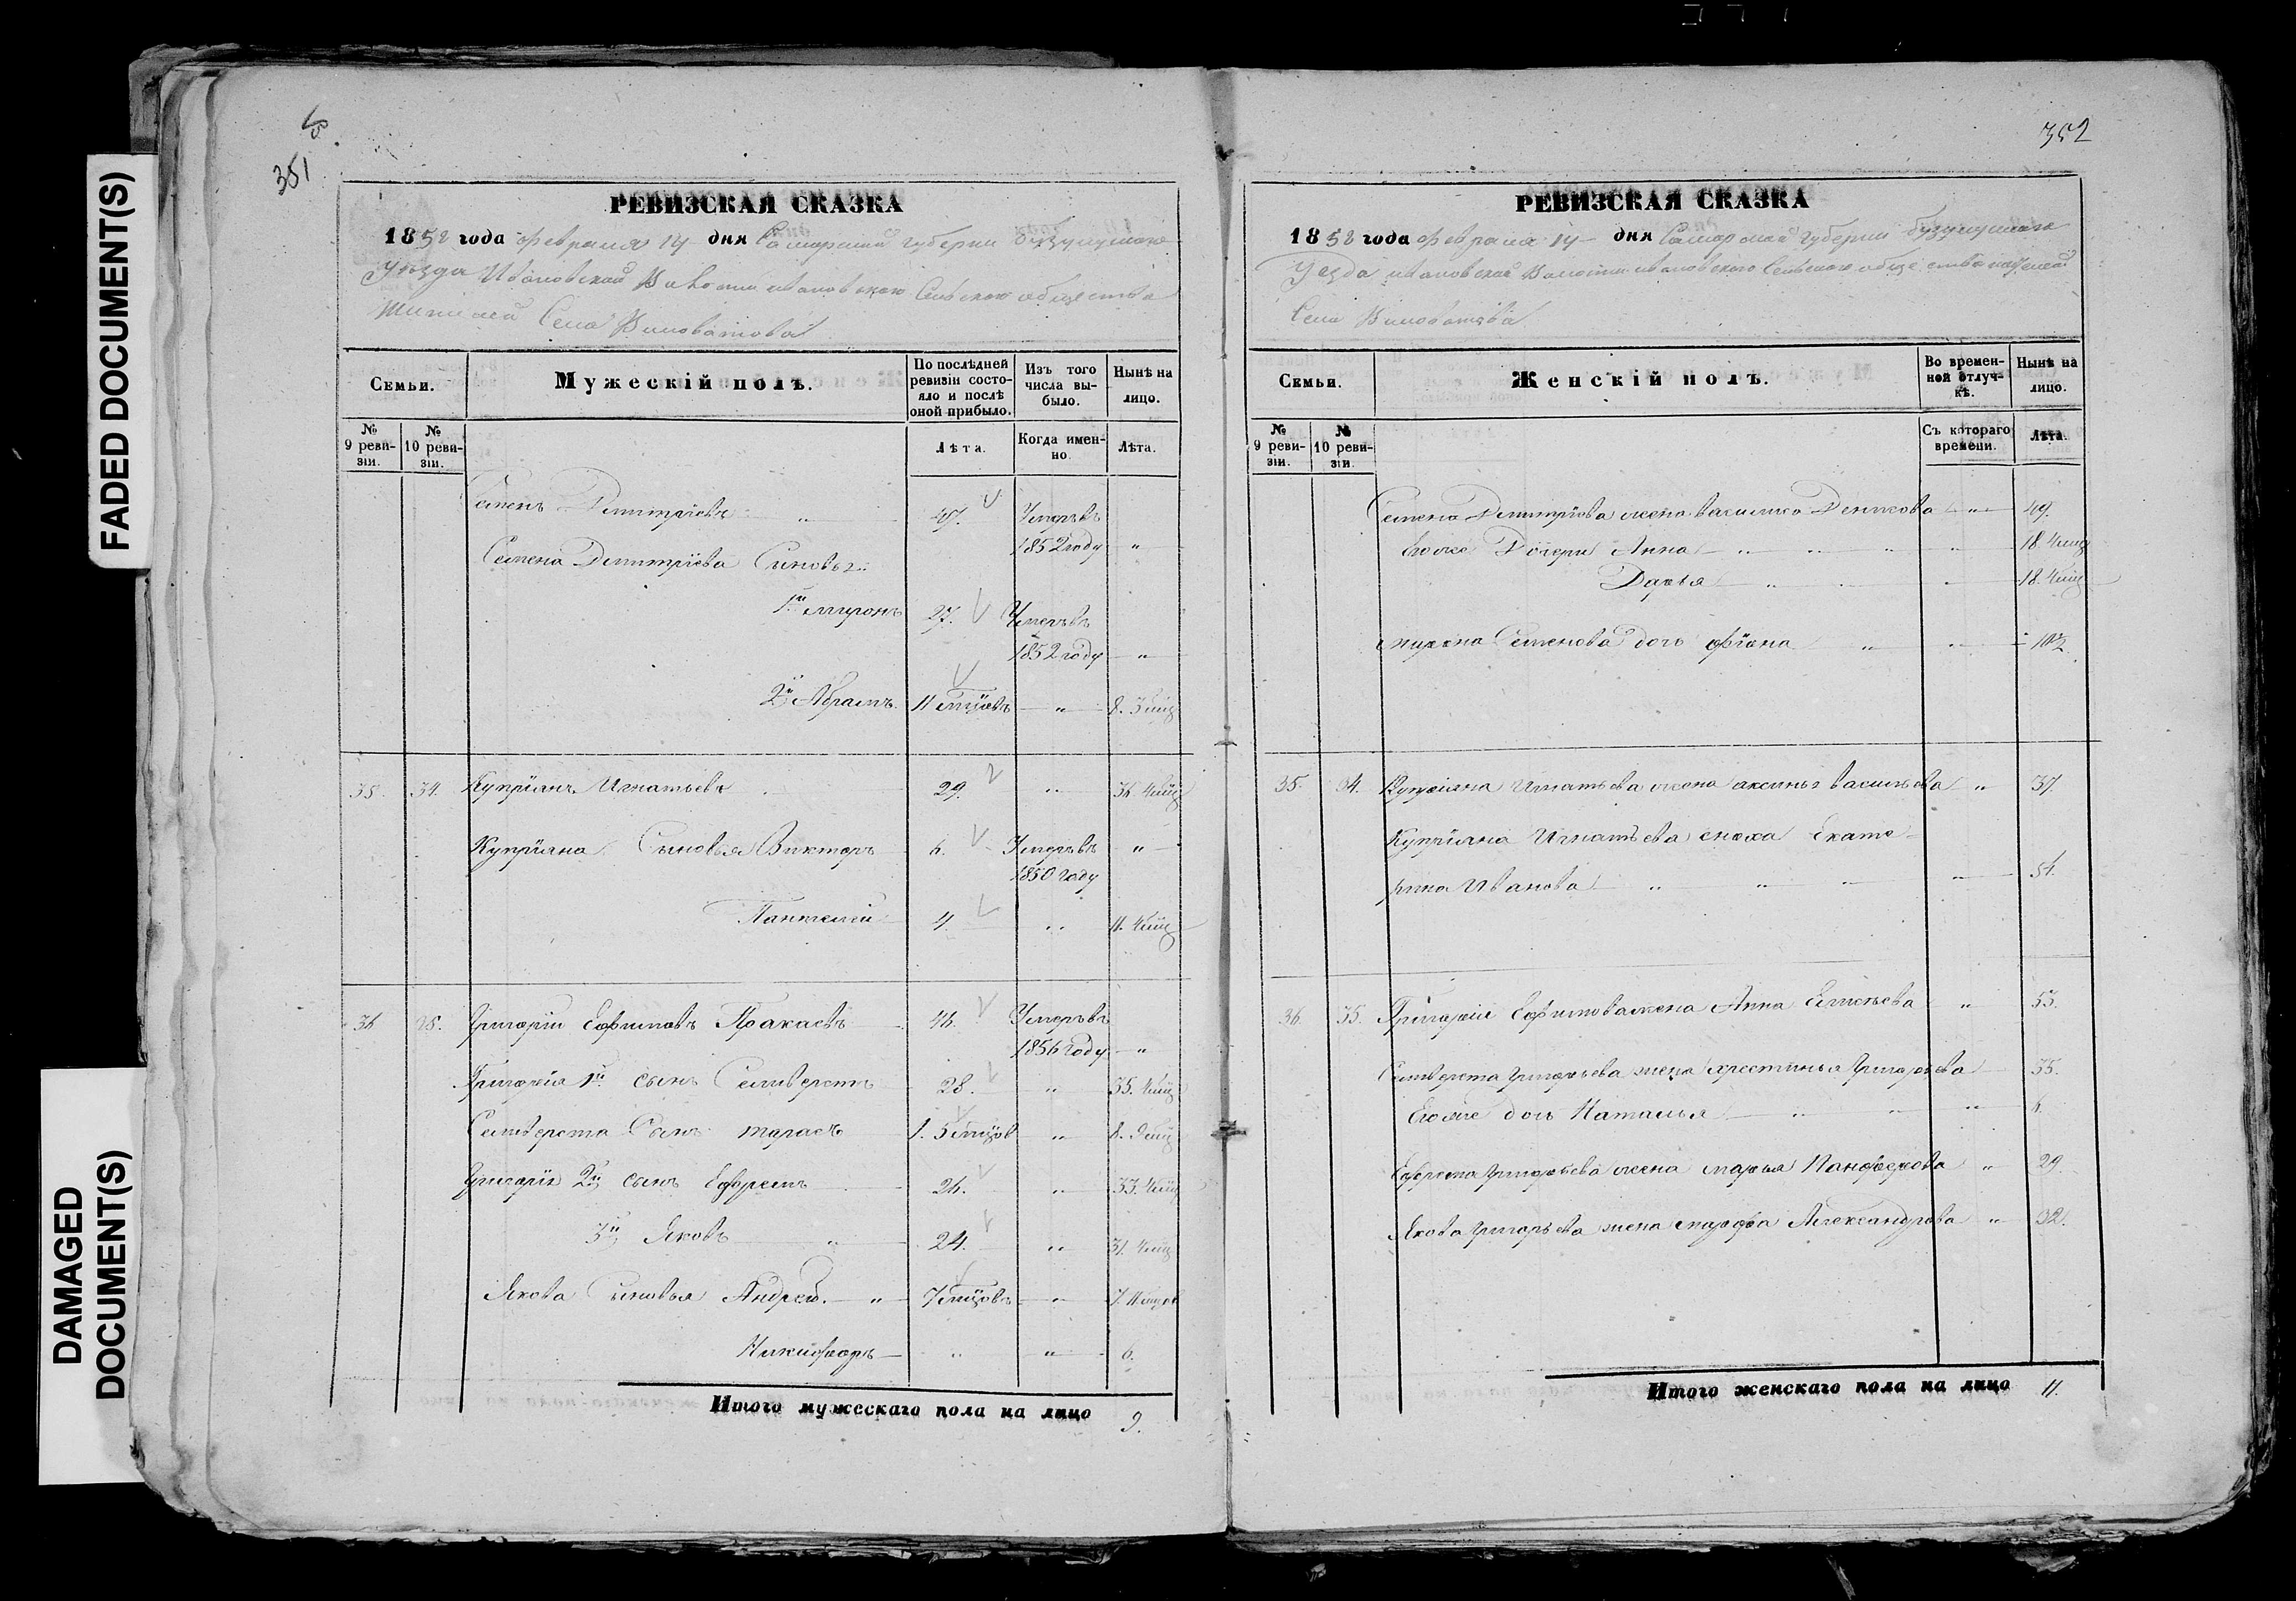 FADED DOCUMENT(S)
DAMAGED
DOCUMENT(S)
351
РЕВИЗСКАЯ СКАЗКА
1858 года февраля 14 дня Самарской губернии Бузулукскаго
Уезда Ивановской Волости ивановскаго Сельскаго общества
Села
Семьи.
Мужескій полъ.
По послѣдней ревизіи состояло и послѣ оной прибыло.
Изъ того числа выбыло.
Нынѣ на лицо.
№ 9 ревизіи.
№ 10 ревизіи.
Лѣта.
Когда именно
Лѣта.
Семенъ Димитріевъ " 47. Умеръ въ
1852 году "
Семена Димитріева Сыновья
1й миронъ 27. Умеръ въ
1852 году "
2й Абрамъ 11 мцовъ "
35. 34. Купріянъ Игнатьевъ 29. "
Купріяна Сыновья Викторъ 6. Умеръ въ "
1850 году
Пантелей 4. "
36 35. Григорій Ефимовъ 46. Умеръ въ
1856 году "
Григорія 1й сынъ Селиверстъ 28. "
Селиверста Сынъ тарасъ 1. 5 мцов "
Григорія 2й сынъ Ефремъ 24. "
3й Яковъ " 24. "
Якова Сыновья Андрей. " 7 мцовъ "
Никифоръ " " 6.
Итого мужескаго пола на лицо 9.
352
РЕВИЗСКАЯ СКАЗКА
1858 года февраля 14 дня Самарской губернии Бузулукскаго
Уезда ивановской Волости ивановскаго Сельскаго общества
Села
Семьи.
Женскій полъ.
Во временной отлучкѣ.
Нынѣ на лицо.
№ 9 ревизіи.
№ 10 ревизіи.
Съ котораго времени.
Лѣта.
Семена Димитріова жена " 49.
Егоже Дочери Анна "
Дарья "
мирона Семенова дочь "
35. 34. Купріяна Игнатьева жена аксинья васильева " 37
Купріяна Игнатьева сноха Екате-
рина Иванова " 54.
36. 35. Григорія Ефимова жена Анна " 53.
Селиверста григорьева жена хрестинья григорьева 35.
Егоже дочь Наталья " 6
Ефрема григорьева жена марья " 29.
Якова григорьева жена марфа Александрова " 32.
Итого женскаго пола на лицо 11.